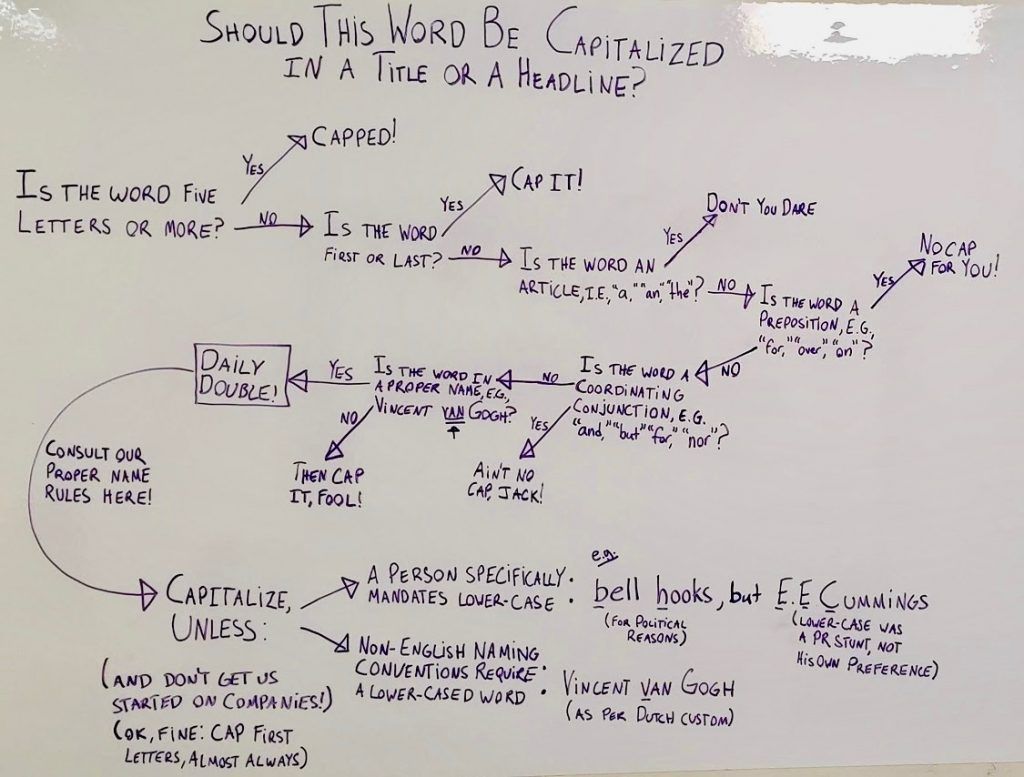 Should This Word Be Capitalized
in a Title or a Headline?
Capped!
Yes
Is the word five
letters or more?
No
Cap it!
Yes
Is the word
first or last?
No
Don't You Dare
Yes
Is the word an
article, i.e., "a," "an," "the"?
No
No cap
for you!
Yes
Is the word a
preposition, e.g.,
"for," "over," "on"?
No
Is the word a
coordinating
conjunction, e.g.
"and," "but" "for," "nor"?
Yes
Ain't no
cap, Jack!
No
Is the word in
a proper name, e.g.,
Vincent van Gogh?
No
Then cap
it, fool!
Yes
Daily
Double!
Consult our
proper name
rules here!
Capitalize,
Unless:
(And don't get us
started on companies!)
(OK, fine: cap first
letters, almost always)
A person specifically
mandates lower-case
e.g.
bell hooks, but E.E Cummings
(for political
reasons)
(lower-case was
a PR stunt, not
his own preference)
Non-English naming
conventions require
a lower-cased word
Vincent van Gogh
(as per Dutch custom)